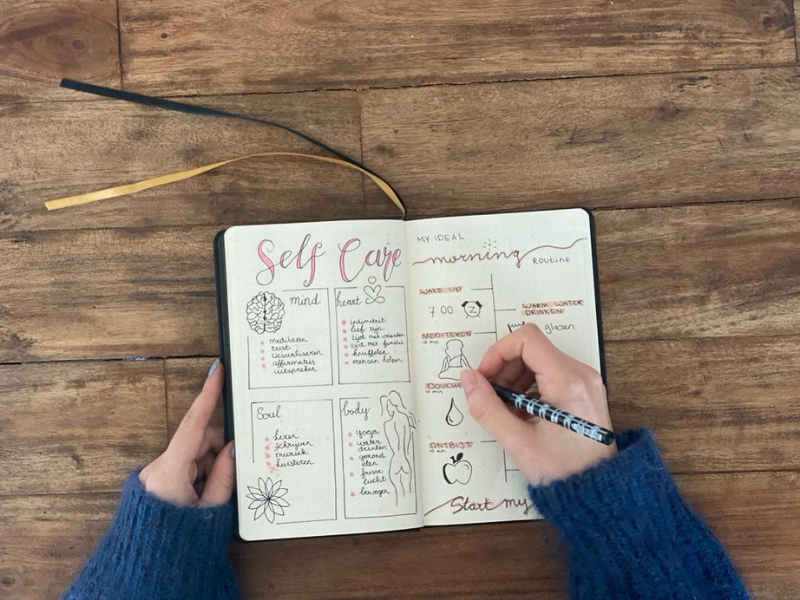 Self Care
mind
mediteren
rust
visualiseren
affirmaties
uitspreken
heart
intimiteit
lief zijn
tijd met vrienden
tijd met familie
knuffelen
mensen helpen
Soul
lezen
schrijven
muziek
luisteren
body
yoga
water
drinken
gezond
eten
frisse
lucht
bewegen
MY IDEAL
morning
ROUTINE
WAKE UP
7:00
Z
WARM WATER
DRINKEN
glazen
MEDITEREN
DOUCHE
ONTBIJT
Start my